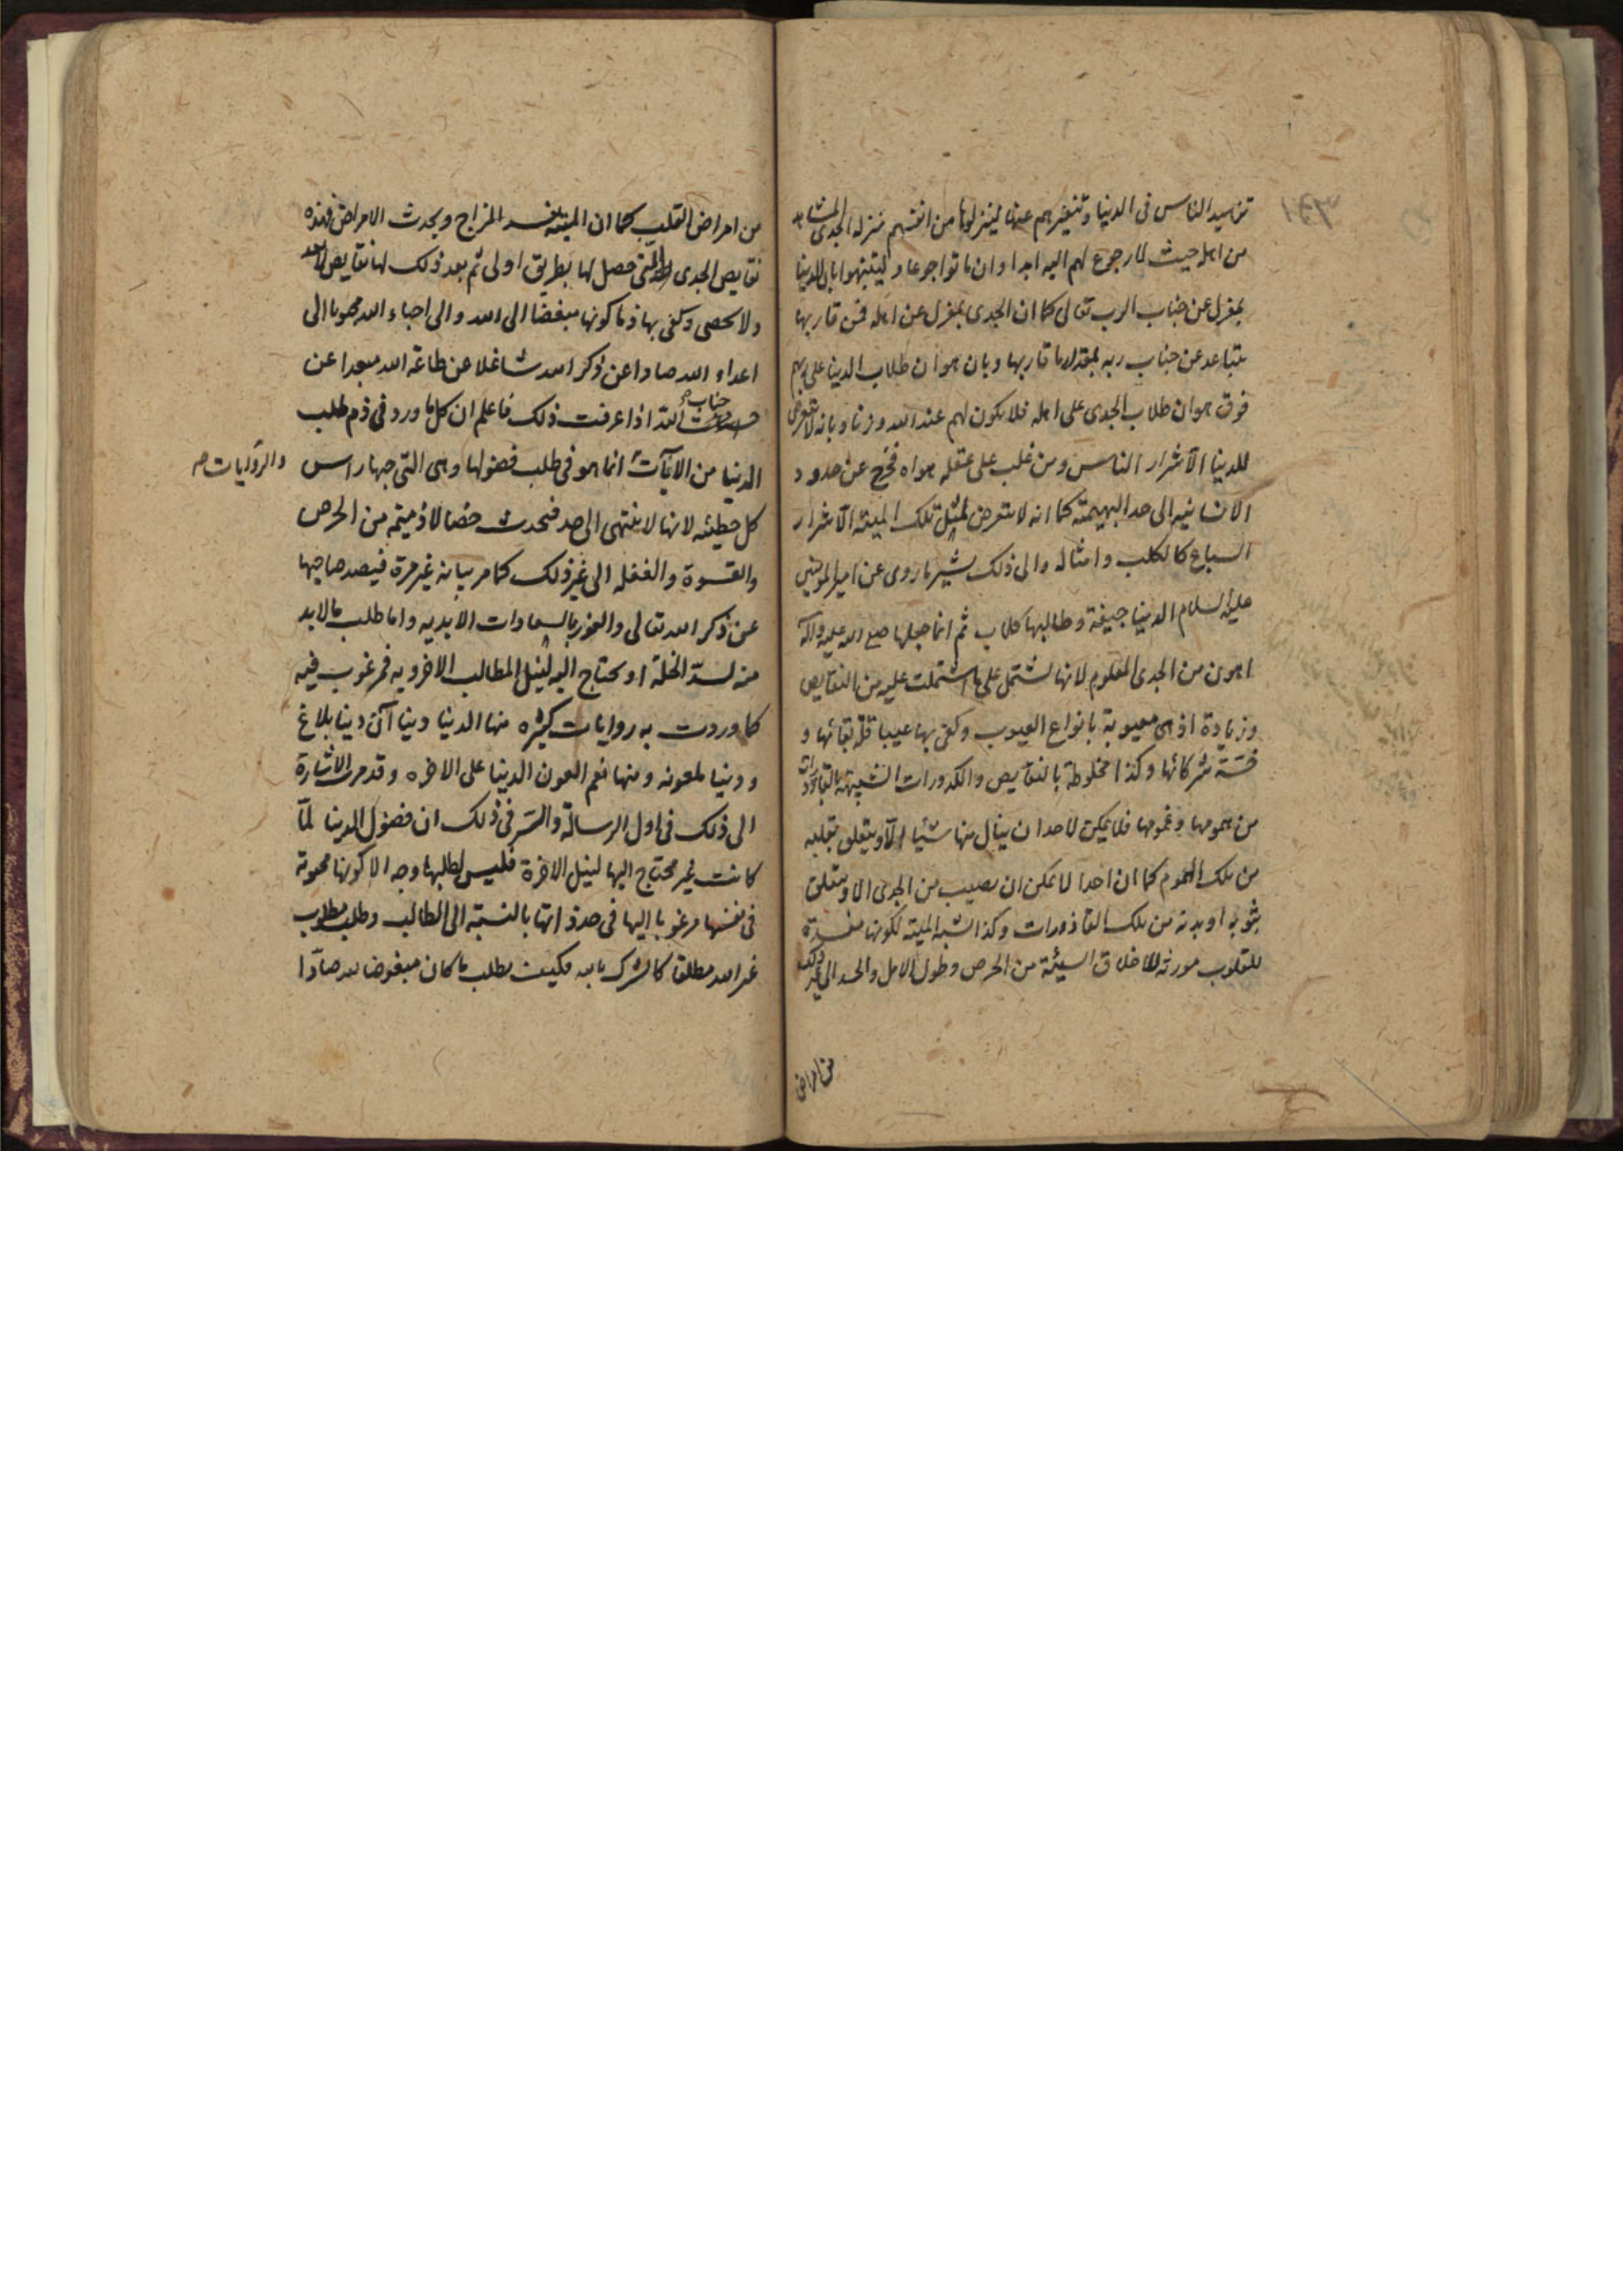 تزهيد الناس فى الدنيا وتنفيرهم عنها لينزلوها من انفسهم منزله الجدى المشابه
من اهله حيث لا رجوع لهم اليه ابدا وان ماتوا جوعا وليتنبهوا بان الدنيا
بمعزل عن جناب الرب تعالى كما ان الجدى بمعزل عن اهله فمن قاربها
يتباعد عن جناب ربه بمقدار ما قاربها وبان هوان طلاب الدنيا على ربهم
فوق هوان طلاب الجدى على اهله فلا يكون لهم عند الله وزنا وبانه لا يتعرض
للدنيا الا شرار الناس ومن غلب على عقله هواه فخرج عن حدود
الانسانيه الى حد البهيمة كما انه لا يتعرض لمثل تلك الميتة الا شرار
السباع كالكلب وامثاله والى ذلك يشير ما روى عن امير المومنين
عليه السلام الدنيا جيفة وطالبها كلاب ثم انما جعلها صلى الله عليه وآله
اهون من الجدى المعلوم لانها تشتمل على ما اشتملت عليه من النقايص
وزيادة اذ هى معيوبة بانواع العيوب وكفى بها عيبا قلة بقائها و
خسّة شركائها وكذا مخلوطة بالنقايص والكدورات الشبيهة بالقاذورات
من همومها وغمومها فلا يمكن لاحد ان ينال منها شيئا الا ويتعلق بقلبه
من تلك الهموم كما ان احدا لا يمكن ان يصيب من الجدى الا ويتعلق
بثوبه او بدنه من تلك القاذورات وكذا اشبه الميتة لكونها مفسدة
للقلوب مورثه للاخلاق السيئة من الحرص وطول الامل والحسد الى غير ذلك
من امراض
من امراض القلب كما ان الميتة تفسد المزاج ويحدث الامراض فهذه
نقايص الجدى التى حصل لها بطريق اولى ثم بعد ذلك لها نقايص لا تعد
ولا تحصى وكفى بها ذما كونها مبغضا الى الله والى احباء الله محبوبا الى
اعداء الله صادا عن ذكر الله شاغلا عن طاعة الله مبعدا عن
جناب الله اذا عرفت ذلك فاعلم ان كل ما ورد فى ذم طلب
الدنيا من الآيات انما هو فى طلب فضولها وهى التى حبها راس
والروايات صح
كل خطيئه لانها لا ينتهى الى حد فتحدث خصالا ذميمة من الحرص
والقسوة والغفله الى غير ذلك كما مر بيانه غير مرة فيصد صاحبها
عن ذكر الله تعالى والفوز بالسعادات الابديه واما طلب ما لابد
منه لسدّ الخلة او يحتاج اليه لنيل المطالب الاخرويه فمرغوب فيه
كما وردت به روايات كثيره منها الدنيا دنياآن دنيا بلاغ
ودنيا ملعونه ومنها نعم العون الدنيا على الاخره وقد مرت الاشارة
الى ذلك فى اول الرسالة والسّر فى ذلك ان فضول الدنيا لمّا
كانت غير محتاج اليها لنيل الاخرة فليس لطلبها وجه الا كونها محبوبة
فى نفسها مرغوبا اليها فى حد ذاتها بالنسبة الى الطالب وطلب مطلوب
غير الله مطلقا كالشرك بالله فكيف بطلب ما كان مبغوضا لله صادّا